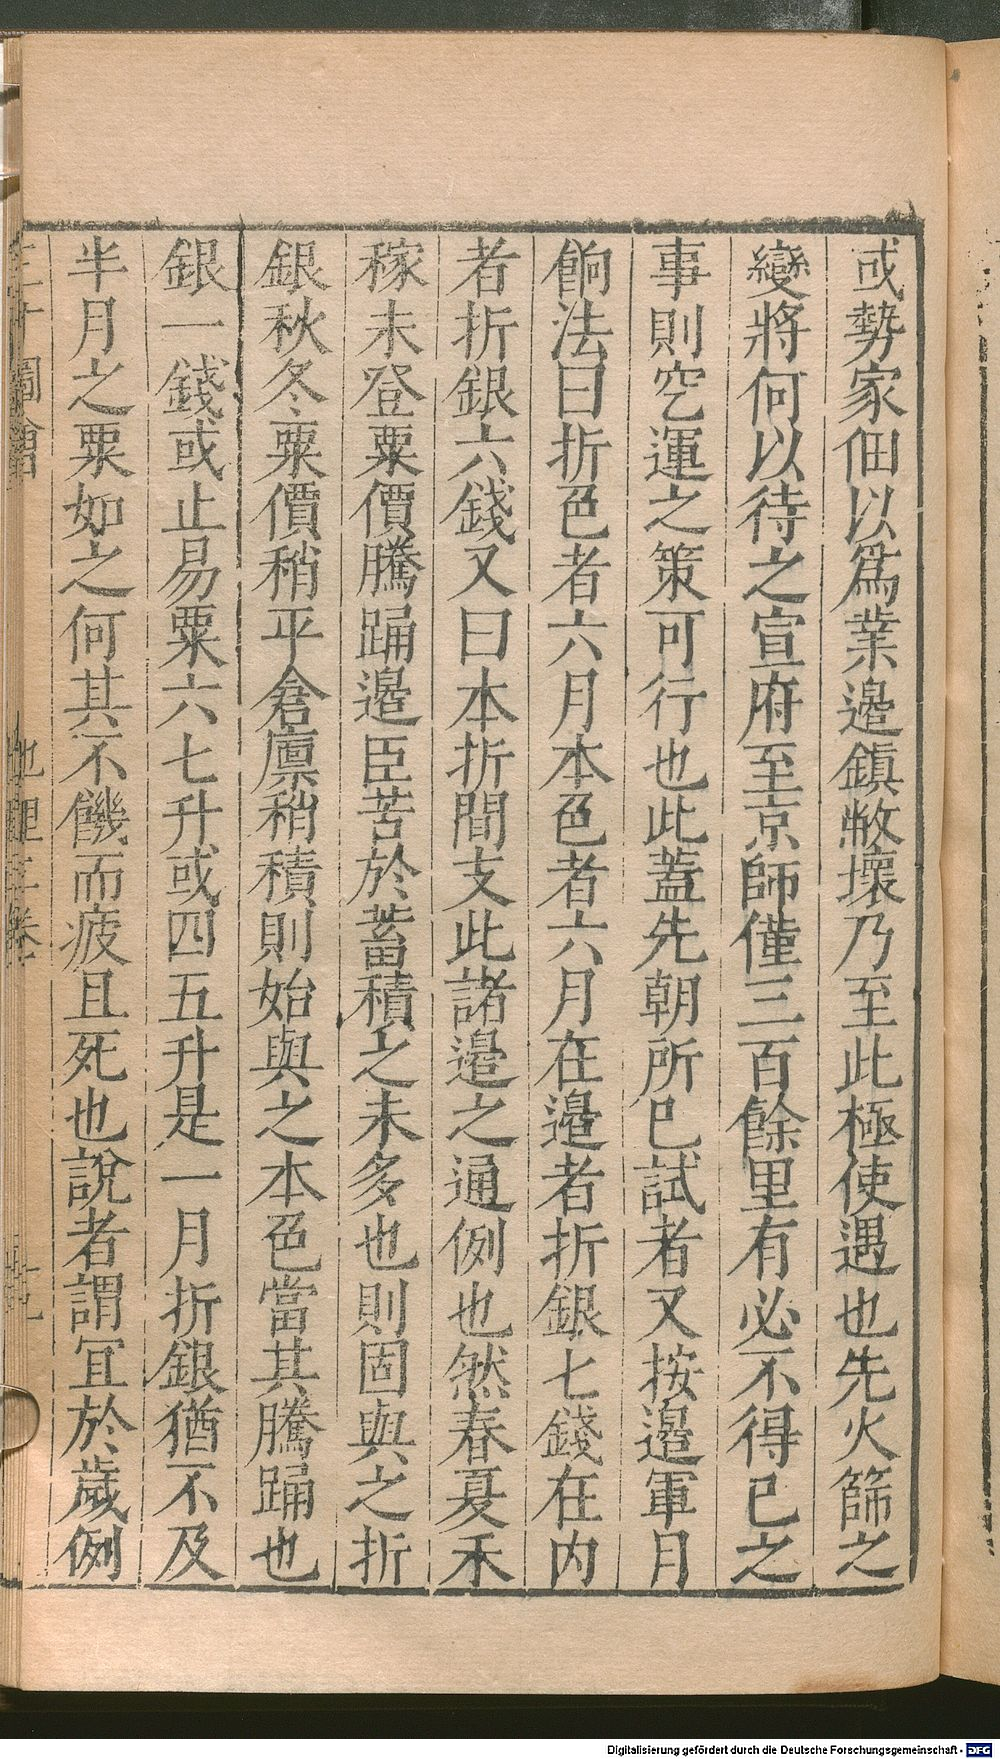 或勢家佃以爲業邉鎮敝壞乃至此極使遇也先火篩之
變將何以待之宣府至京師僅三百餘里有必不得已之
事則空運之策可行也此蓋先朝所已試者又按邉軍月
餉法曰折色者六月本色者六月在邉者折銀七錢在内
者折銀六錢又曰本折間支此諸邉之通例也然春夏禾
稼未登粟價騰踊邉臣苦於蓄積之未多也則固與之折
銀秋冬粟價稍平倉廪稍積則始與之本色當其騰踊也
銀一錢或止易粟六七升或四五升是一月折銀猶不及
半月之粟如之何其不饑而疲且死也說者謂冝於歲例
地理三卷
Digitalisierung gefördert durch die Deutsche Forschungsgemeinschaft - DFG